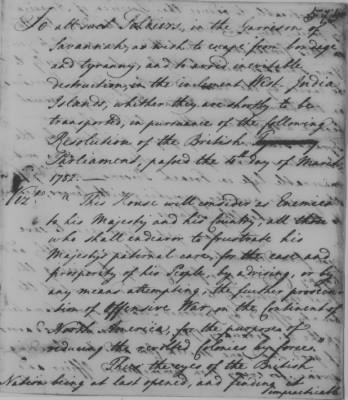 To all such Soldiers, in the Garrison of
Savannah, as wish to escape from bondage
and tyranny, and to avoid inevitable
destruction, in the inclement West India
Islands, whither they are shortly to be
transported, in pursuance of the following
Resolution of the British
Parliament, passed the 4th day of March
1782.—
"This House will consider as Enemies
to his Majesty and his Country, all those
who shall endeavor to frustrate his
Majesty's paternal care, for the ease and
prosperity of his People, by advising, or by
any means attempting, the further prosecu-
tion of Offensive War, on the Continent of
North America, for the purposes of
reducing the revolted Colonies by force."
Thus the eyes of the British
Nation being at last opened, and finding it
impracticable